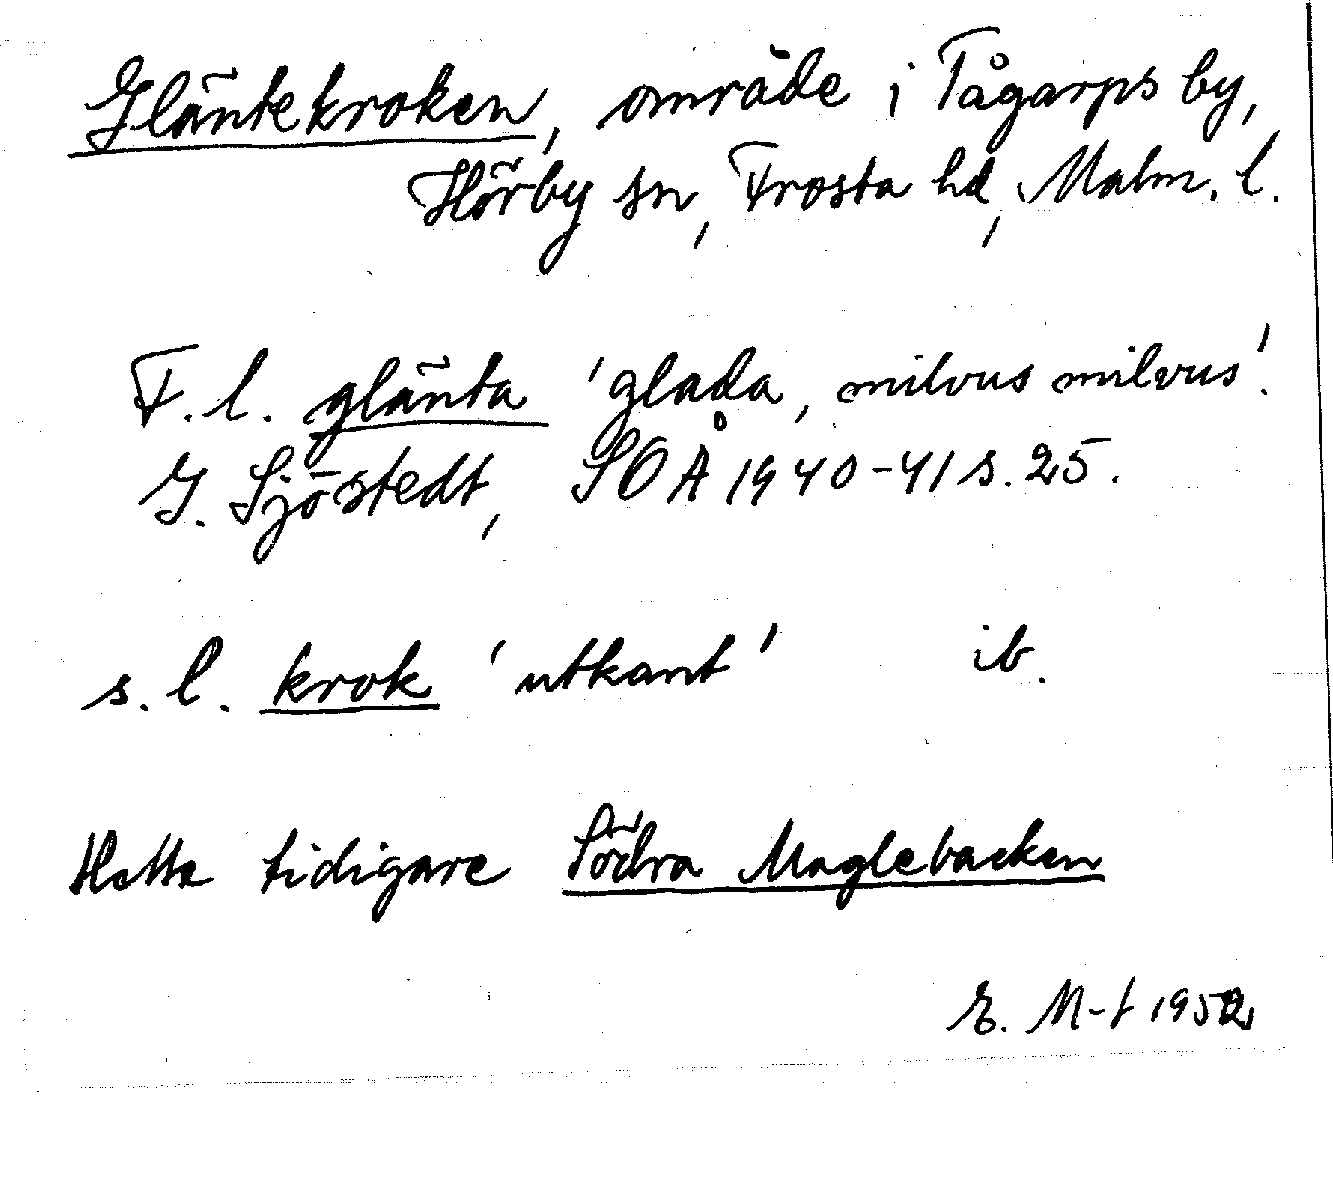 Gläntekroken, område i Tågarps by,
Hörby sn, Frosta hd, Malm. l.
F. l. glänta 'glada, milvus milvus'.
G. Sjöstedt, SOÅ 1940-41 s. 25.
s. l. krok 'utkant' ib.
Hette tidigare Södra Maglebacken
E. M-t 1952